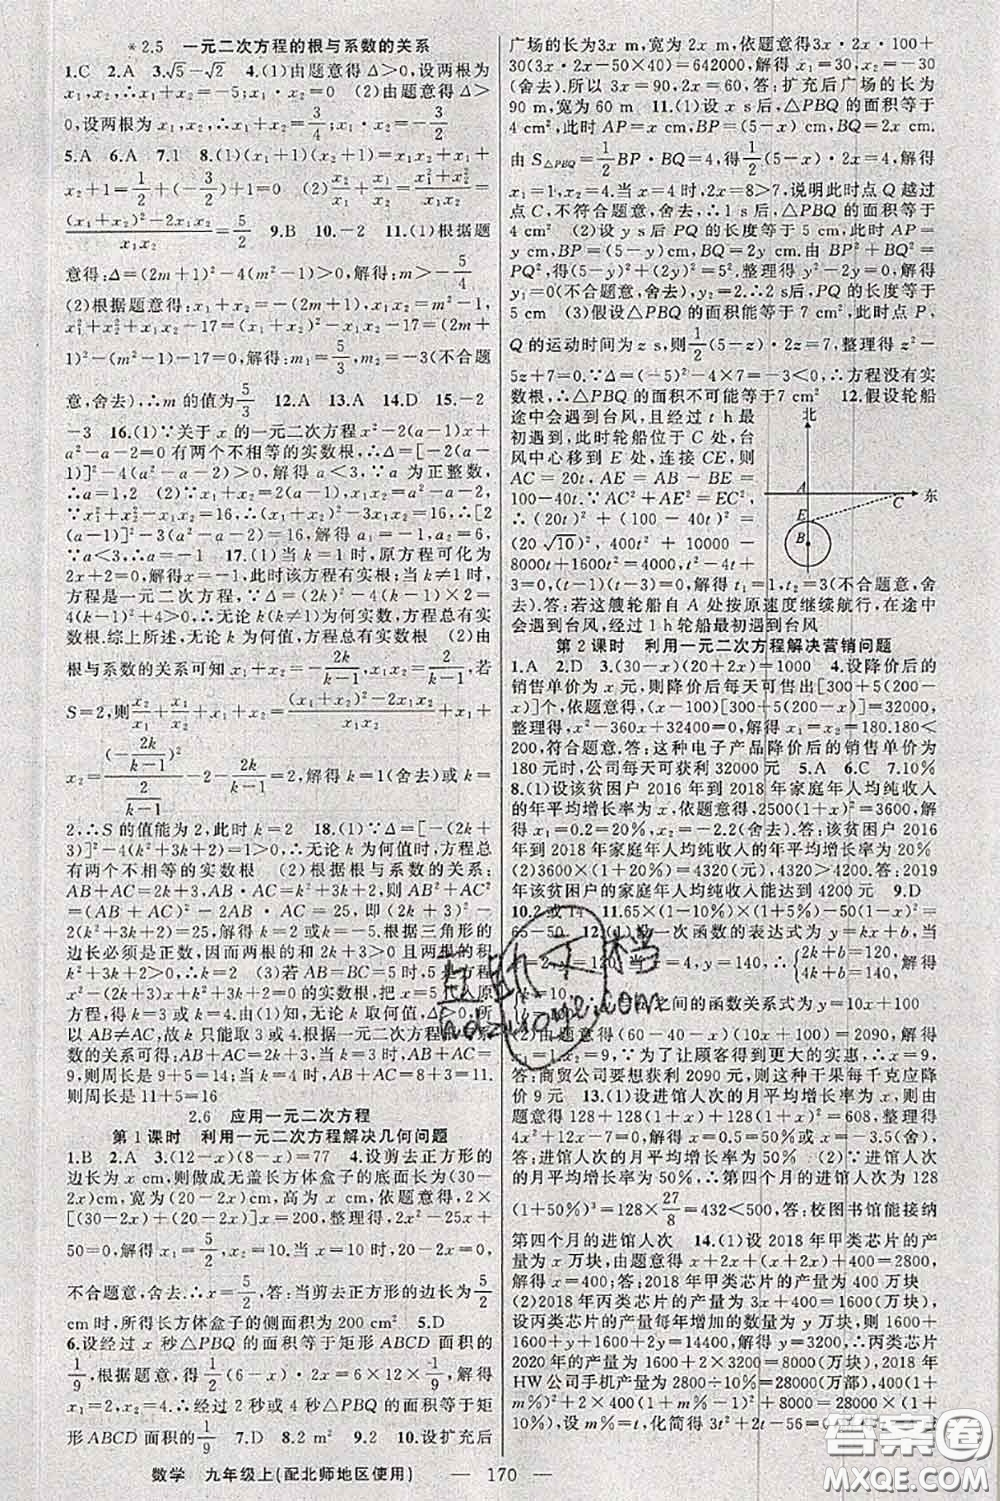 *2.5 一元二次方程的根与系数的关系
1.C 2.A 3.√5-√2 4.(1)由题意得Δ>0,设两根为
x₁,x₂,∴x₁+x₂=-5;x₁·x₂=0 (2)由题意得Δ>
0,设两根为x₁,x₂,∴x₁+x₂=3/4;x₁·x₂=-3/2
5.A 6.A 7.1 8.(1)(x₁+1)(x₂+1)=x₁x₂+x₁+
x₂+1=1/2+(-3/2)+1=0 (2)x₂/x₁+x₁/x₂=(x₁²+x₂²)/x₁x₂=
((x₁+x₂)²-2x₁x₂)/x₁x₂=5/2 9.B 10.-2 11.(1)根据题
意得:Δ=(2m+1)²-4(m²-1)>0,解得:m>-5/4
(2)根据题意得:x₁+x₂=-(2m+1),x₁x₂=m²-1,
x₁²+x₂²+x₁x₂-17=(x₁+x₂)²-x₁x₂-17=(2m+
1)²-(m²-1)-17=0,解得:m₁=5/3,m₂=-3(不合题
意,舍去),∴m的值为5/3 12.A 13.A 14.D 15.-2
-3 16.(1)∵关于x的一元二次方程x²-2(a-1)x+
a²-a-2=0有两个不相等的实数根,∴Δ=[-2(a-
1)]²-4(a²-a-2)>0,解得a<3,∵a为正整数,
∴a=1,2 (2)∵x₁+x₂=2(a-1),x₁x₂=a²-a-2,
∵x₁²+x₂²-x₁x₂=16,∴(x₁+x₂)²-3x₁x₂=16,∴[2
(a-1)]²-3(a²-a-2)=16,解得a₁=-1,a₂=6,
∵a<3,∴a=-1 17.(1)当k=1时,原方程可化为
2x+2=0,解得x=-1,此时该方程有实根;当k≠1时,
方程是一元二次方程,∵Δ=(2k)²-4(k-1)×2=
4(k-1)²+4>0,∴无论k(k≠1)为何实数,方程总有实
数根.综上所述,无论k为何值,方程总有实数根 (2)由
根与系数的关系可知x₁+x₂=-2k/(k-1),x₁x₂=2/(k-1),若
S=2,则x₂/x₁+x₁/x₂+x₁+x₂=((x₁+x₂)²-2x₁x₂)/x₁x₂+x₁+
x₂=(-2k/(k-1))²/(2/(k-1))-2-2k/(k-1)=2,解得k=1(舍去)或k=
2,∴S的值能为2,此时k=2 18.(1)∵Δ=[-(2k+
3)]²-4(k²+3k+2)=1>0,∴无论k为何值时,方程总
有两个不相等的实数根 (2)根据根与系数的关系:
AB+AC=2k+3,AB·AC=k²+3k+2,则AB²+AC²
=(AB+AC)²-2AB·AC=25,即(2k+3)²-2(k²+
3k+2)=25,解得k=2或k=-5.根据三角形的
边长必须是正数,因而两根的和2k+3>0且两根的积
k²+3k+2>0,∴k=2 (3)若AB=BC=5时,5是方程
x²-(2k+3)x+k²+3k+2=0的实数根,把x=5代入原
方程,得k=3或k=4.由(1)知,无论k取何值,Δ>0,所
以AB≠AC,故k只能取3或4.根据一元二次方程根与系
数的关系可得:AB+AC=2k+3,当k=3时,AB+AC=
9,则周长是9+5=14;当k=4时,AB+AC=8+3=11.
则周长是11+5=16
2.6 应用一元二次方程
第1课时 利用一元二次方程解决几何问题
1.B 2.A 3.(12-x)(8-x)=77 4.设剪去正方形的
边长为x cm,则做成无盖长方体盒子的底面长为(30-
2x)cm,宽为(20-2x)cm,高为x cm,依题意,得2×
[(30-2x)+(20-2x)]x=200,整理得,2x²-25x+
50=0,解得x₁=5/2,x₂=10.当x=10时,20-2x=0,
不合题意,舍去.∴x=5/2.答:剪去正方形的边长为5/2
cm时,所得长方体盒子的侧面积为200 cm² 5.D
6.设经过x秒△PBQ的面积等于矩形ABCD面积的
1/9,根据题意得1/2×(6-x)×2x=6×12×1/9,解得x₁=2,
x₂=4.∴经过2秒或4秒△PBQ的面积等于矩形
ABCD面积的1/9 7.D 8.2 m² 9.2 10.设扩充后
广场的长为3x m,宽为2x m,依题意得3x·2x·100+
30(3x·2x-50×40)=642000,解得x₁=30,x₂=-30
(舍去).所以3x=90,2x=60,答:扩充后广场的长为
90 m,宽为60 m 11.(1)设x s后,△PBQ的面积等于
4 cm²,此时AP=x cm,BP=(5-x)cm,BQ=2x cm.
由S△PBQ=1/2BP·BQ=4,得1/2(5-x)·2x=4,解得
x₁=1,x₂=4.当x=4时,2x=8>7,说明此时点Q越过
点C,不符合题意,舍去,∴1 s后,△PBQ的面积等于
4 cm² (2)设y s后PQ的长度等于5 cm,此时AP=
y cm,BP=(5-y)cm,BQ=2y cm.由BP²+BQ²=
PQ²,得(5-y)²+(2y)²=5².整理得y²-2y=0,解得
y₁=0(不合题意,舍去),y₂=2.∴2 s后,PQ的长度等于
5 cm (3)假设△PBQ的面积能等于7 cm²,此时点P、
Q的运动时间为z s,则1/2(5-z)·2z=7,整理得z²-
5z+7=0.∵Δ=(-5)²-4×7=-3<0,∴方程没有实
数根,∴△PBQ的面积不可能等于7 cm² 12.假设轮船
途中会遇到台风,且经过t h最
初遇到,此时轮船位于C处,台
风中心移到E处,连接CE,则
AC=20t,AE=AB-BE=
100-40t.∵AC²+AE²=EC²,
∴(20t)²+(100-40t)²=
(20√10)²,400t²+10000-
8000t+1600t²=4000,t²-4t+
3=0,(t-1)(t-3)=0,解得t₁=1,t₂=3(不合题意,舍
去).答:若这艘轮船自A处按原速度继续航行,在途中
会遇到台风,经过1 h轮船最初遇到台风
北
A
C
东
E
B
第2课时 利用一元二次方程解决营销问题
1.A 2.D 3.(30-x)(20+2x)=1000 4.设降价后的
销售单价为x元,则降价后每天可售出[300+5(200-
x)]个,依题意,得(x-100)[300+5(200-x)]=32000,
整理得,x²-360x+32400=0,解得x₁=x₂=180.180<
200,符合题意.答:这种电子产品降价后的销售单价为
180元时,公司每天可获利32000元 5.A 6.C 7.10%
8.(1)设该贫困户2016年到2018年家庭年人均纯收入
的年平均增长率为x,依题意得,2500(1+x)²=3600,
解得x₁=0.2=20%,x₂=-2.2(舍去).答:该贫困户2016
年到2018年家庭年人均纯收入的年平均增长率为20%
(2)3600×(1+20%)=4320,4320>4200.答:2019
年该贫困户的家庭年人均纯收入能达到4200元 9.D
10.2或14 11.65×(1-10%)×(1+5%)-50(1-x)²=
65-50 12.(1)设一次函数的表达式为y=kx+b,当
x=2,y=120;当x=4,y=140,∴{2k+b=120, 4k+b=140,
之间的函数关系式为y=10x+100
(2)由题意得(60-40-x)(10x+100)=2090,解得
x₁=1,x₂=9.∵为了让顾客得到更大的实惠,∴x=9.
答:商贸公司要想获利2090元,则这种干果每千克应降
价9元 13.(1)设进馆人次的月平均增长率为x,则由
题意得128+128(1+x)+128(1+x)²=608,整理得
4x²+12x-7=0,解得x=0.5=50%或x=-3.5(舍去).
答:进馆人次的月平均增长率为50% (2)∵进馆人次
的月平均增长率为50%,∴第四个月的进馆人次为128
(1+50%)³=128×27/8=432<500,答:校图书馆能接纳
第四个月的进馆人次 14.(1)设2018年甲类芯片的产
量为x万块,由题意得x+2x+(x+2x)+400=2800,
解得x=400;答:2018年甲类芯片的产量为400万块
(2)2018年丙类芯片的产量为3x+400=1600(万块),
设丙类芯片的产量每年增加的数量为y万块,则1600
+1600+y+1600+2y=14400,解得y=3200,∴丙类芯片
2020年的产量为1600+2×3200=8000(万块),2018年
HW公司手机产量为2800÷10%=28000(万部),
设m%=t,化简得3t²+2t-56=
数学 九年级上(配北师地区使用) — 170 —
答案圈
MXQE.COM